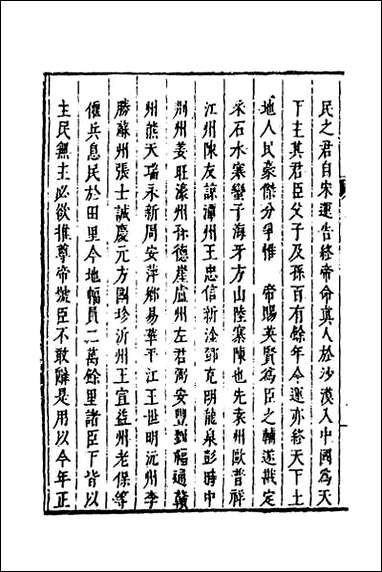 民之君自宋運告終帝命真人於沙漠入中國為天
下主其君臣父子及孫百有餘年今運亦終天下土
地人民豪傑分爭惟　帝賜英賢為臣之輔遂戡定
采石水寨蠻子海牙方山陸寨陳也先袁州歐普祥
江州陳友諒潭州王忠信新淦鄧克明龍泉彭時中
荊州姜珏濠州孫德崖廬州左君弼安豐劉福通贛
州熊天瑞永新周安萍鄉易華平江王世明沅州李
勝蘇州張士誠慶元方國珍沂州王宣益州老保等
偃兵息民於田里今地幅員二萬餘里諸臣下皆以
主民無主必欲推尊帝號臣不敢辭是用以今年正